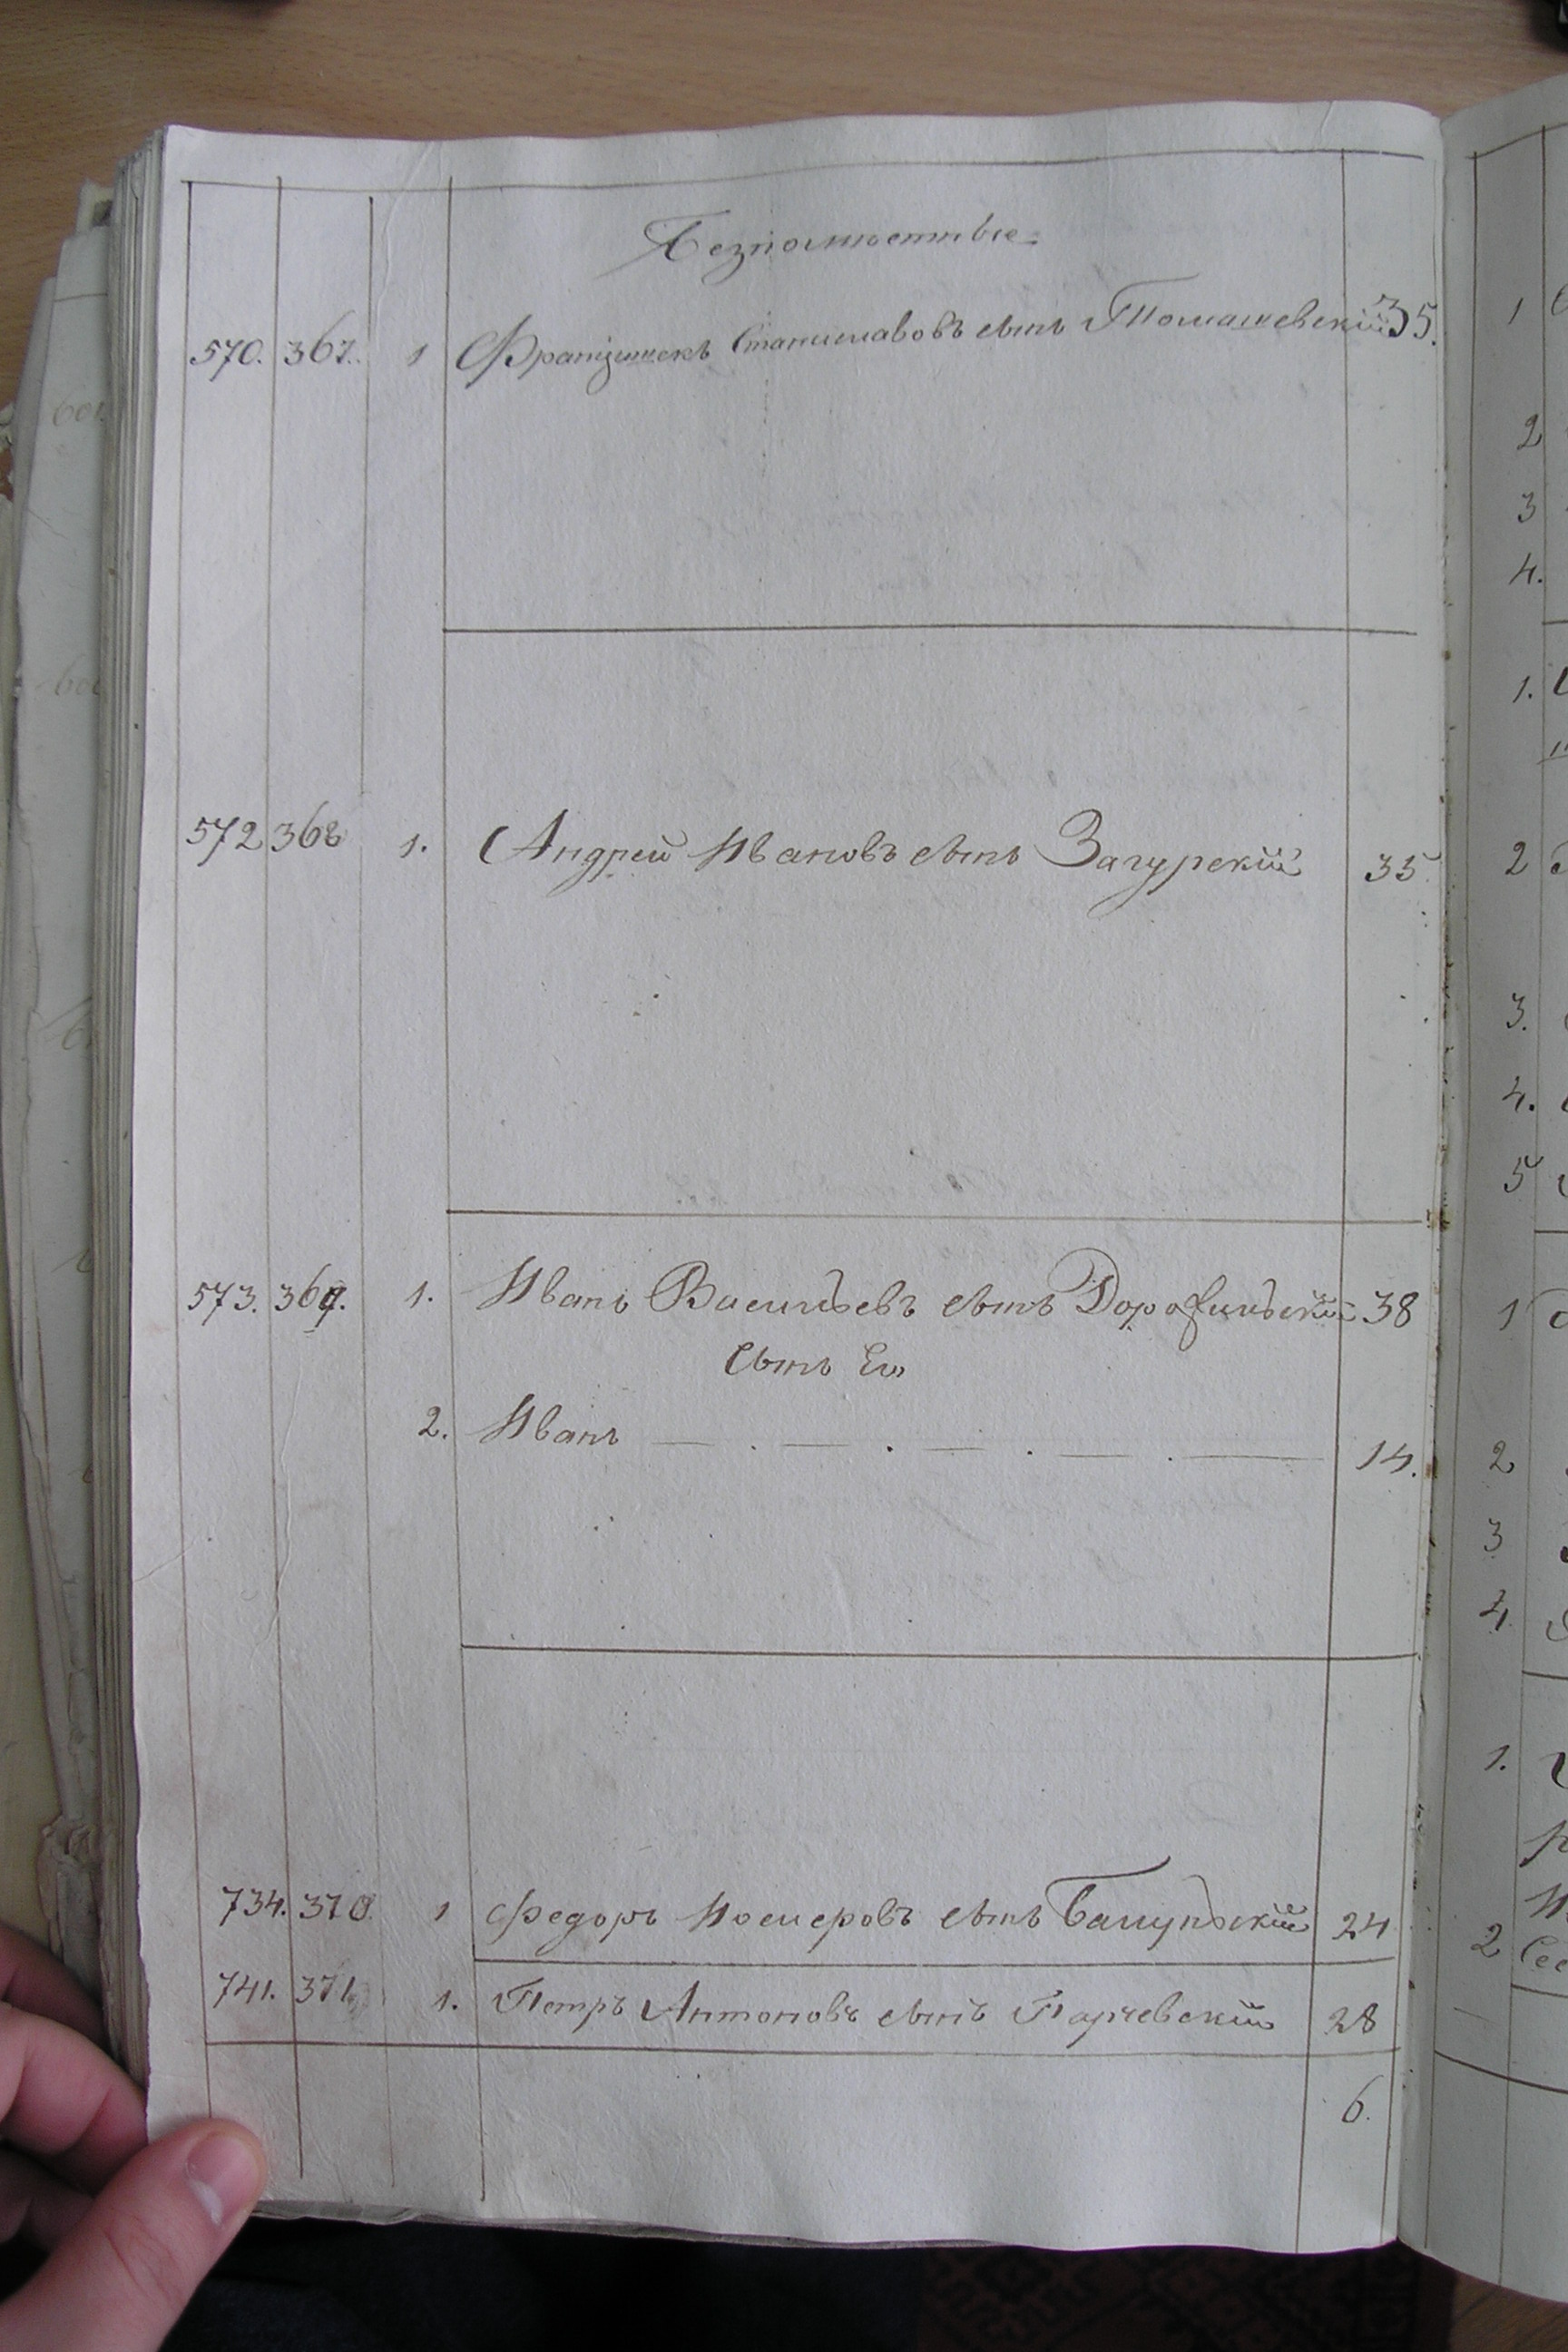 Безпоместные
570. 367. 1 Францишекъ Станиславовъ сынъ Томашевскій 35.
572 368 1. Андрей Ивановъ сынъ Загурскій 35
573. 369. 1. Иванъ Васильевъ сынъ Дорофинскій 38
сынъ Его
2. Иванъ — . — . — . — . — 14.
734. 370. 1 Федоръ Іосиѳовъ сынъ 24
741. 371. 1. Петръ Антоновъ сынъ Парчевскій 28
6.
1
2
3
4.
1.
2
3.
4.
5
1
2
3
4
1.
2